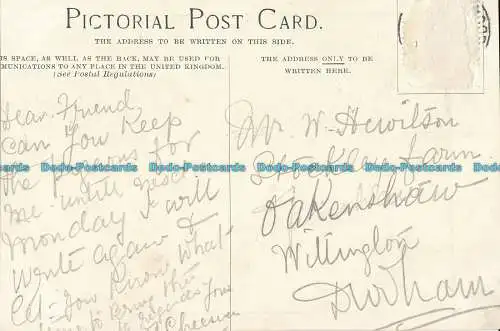 PICTORIAL POST CARD.
THE ADDRESS TO BE WRITTEN ON THIS SIDE.
IS SPACE, AS WELL AS THE BACK, MAY BE USED FOR
MUNICATIONS TO ANY PLACE IN THE UNITED KINGDOM.
(See Postal Regulations)
THE ADDRESS ONLY TO BE
WRITTEN HERE.
Dear Friend
Can you keep
the pigeons for
me until next
Monday I will
write again &
let you know what
Mr W. Hewitson
farm
Oakenshaw
Willington
Durham
Dodo-Postcards Dodo-Postcards Dodo-Postcards Dodo-Postcards Dodo-Postcards
Dodo-Postcards Dodo-Postcards Dodo-Postcards Dodo-Postcards Dodo-Postcards